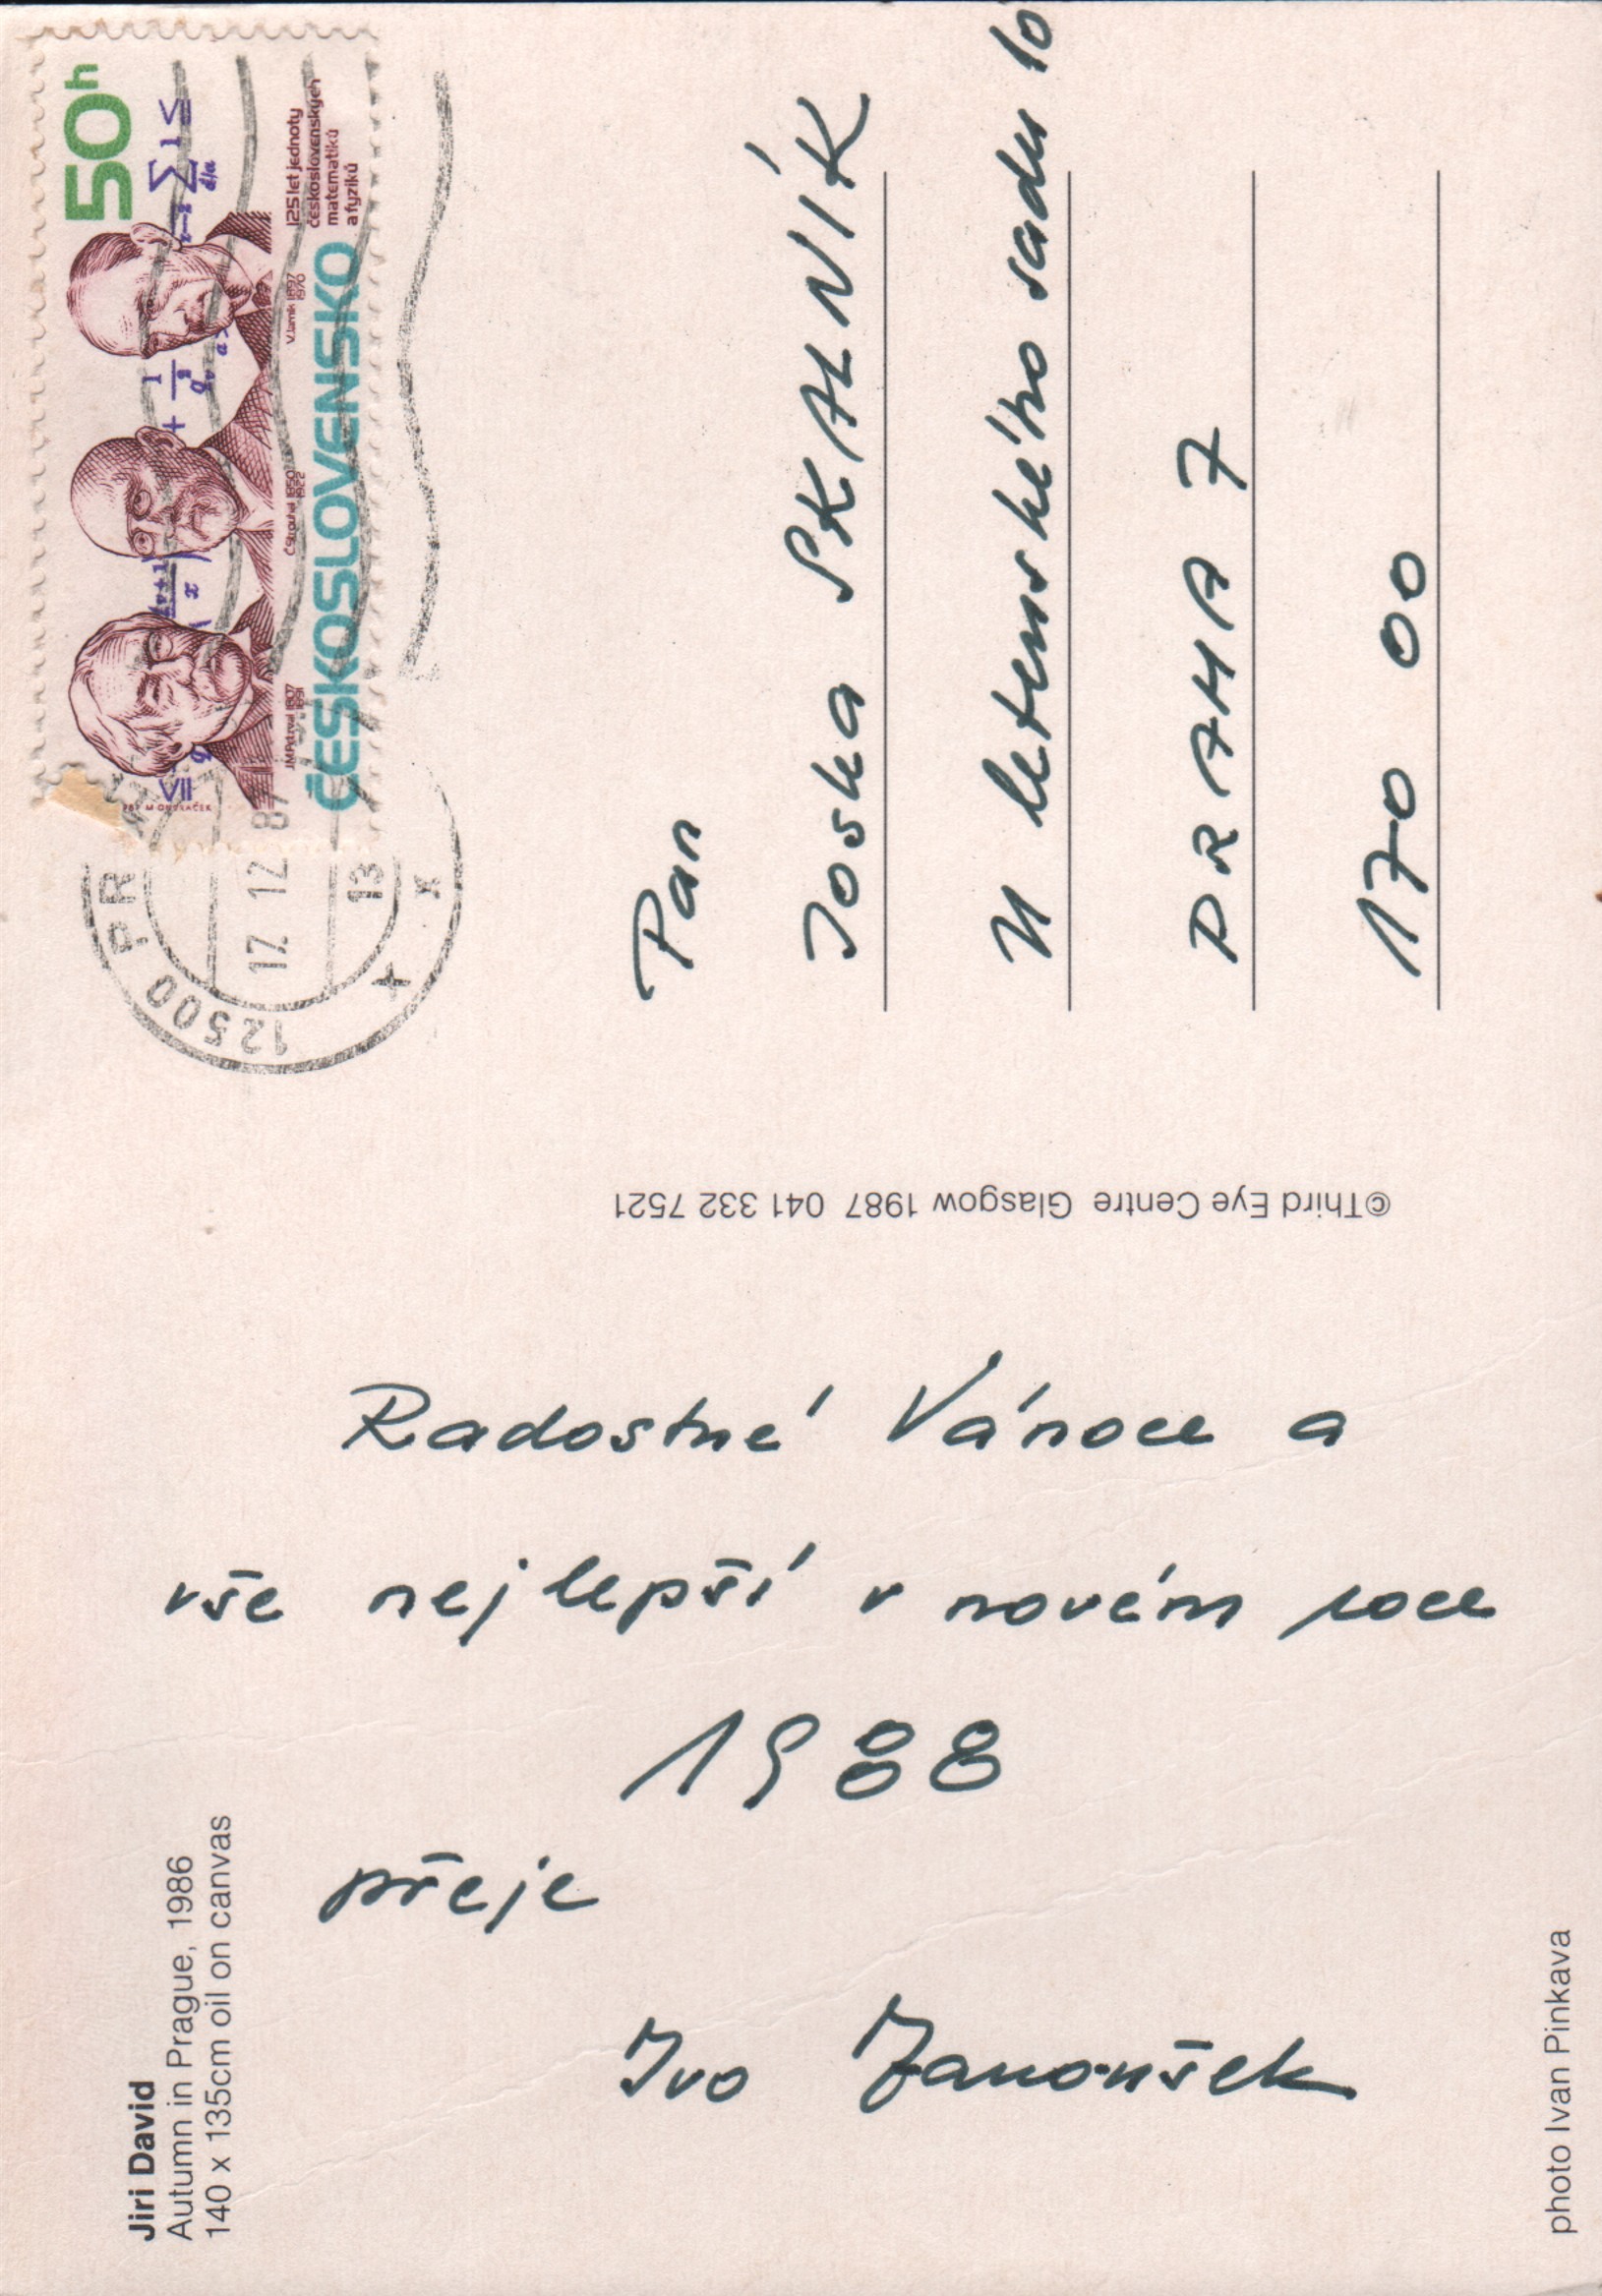 Radostné Vánoce a
vše nejlepší v novém roce
1988
přeje
Ivo Janoušek
Jiri David
Autumn in Prague, 1986
140 x 135cm oil on canvas
photo Ivan Pinkava
©Third Eye Centre Glasgow 1987 041 332 7521
50h
125 let jednoty
československých
matematiků
a fyziků
J.M.Petzval 1807
1891
Č.Strouhal 1850
1922
V.Jarník 1897
1970
ČESKOSLOVENSKO
12500 PR
17. 12. 87
13
Pan
Joska SKALNÍK
U letenského sadu 10
PRAHA 7
170 00